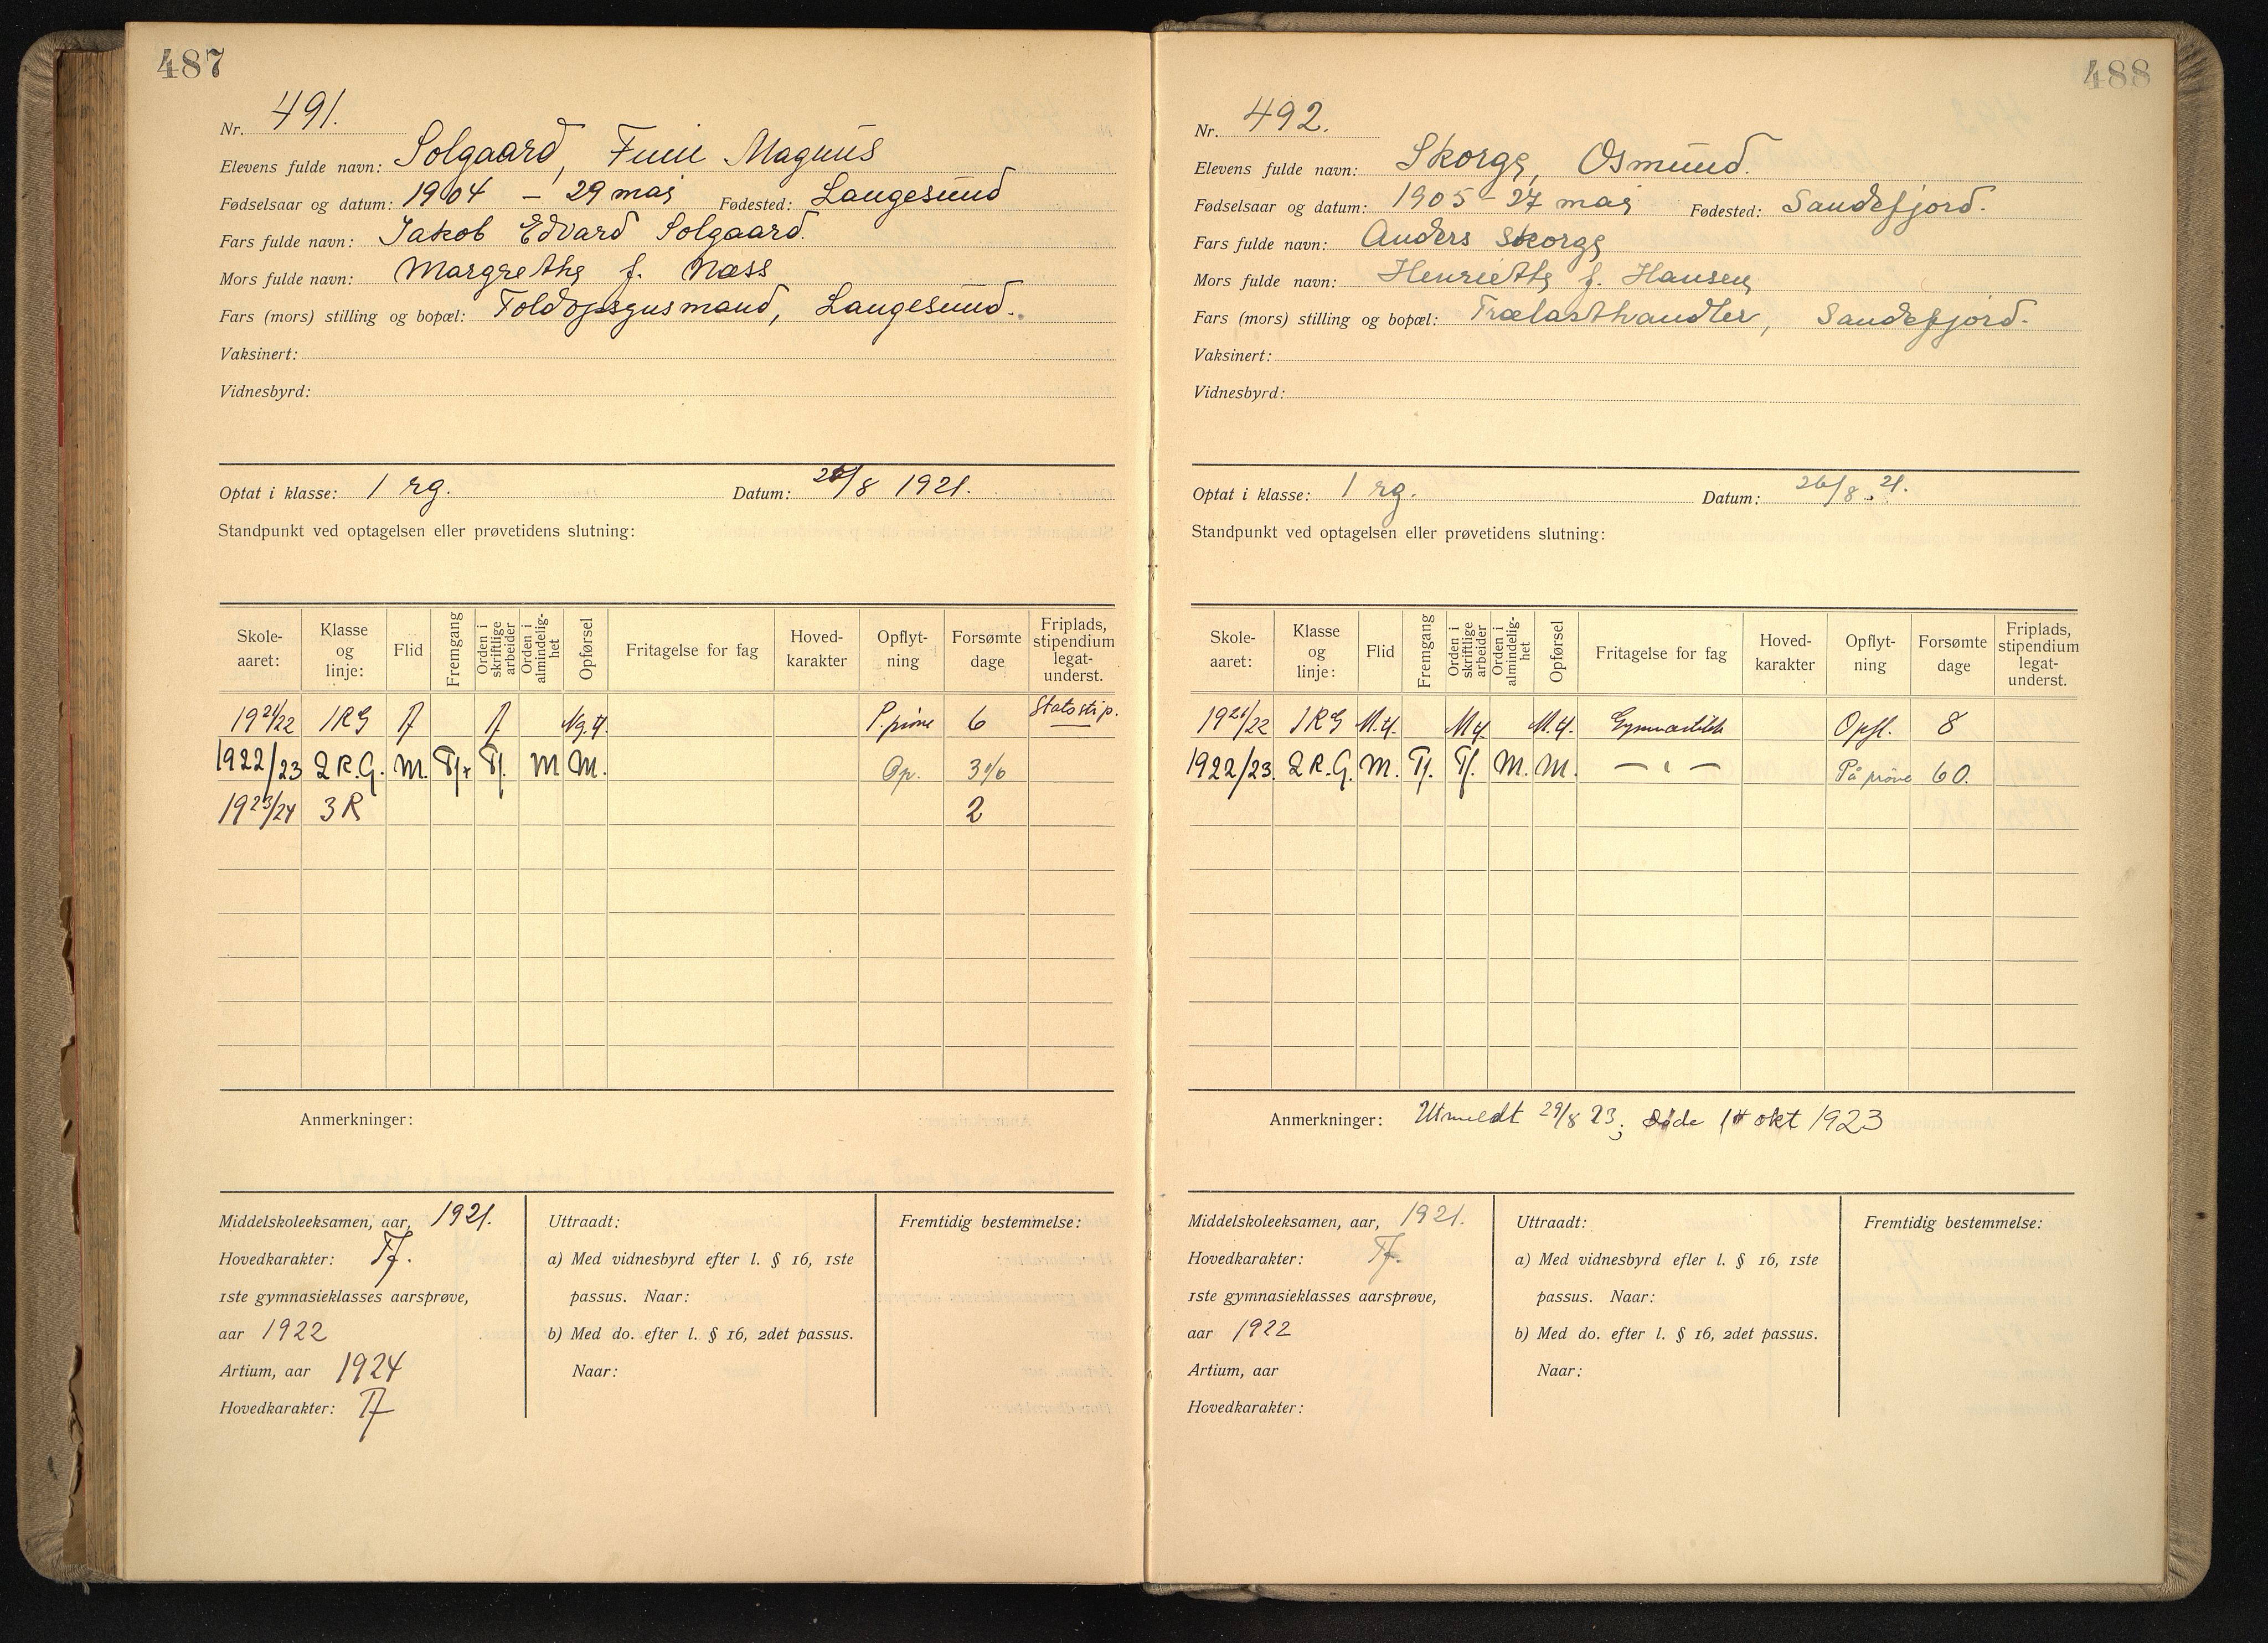 487
Nr. 491.
Elevens fulde navn: Solgaard, Finn Magnus
Fødselsaar og datum: 1904 - 29 mai Fødested: Langesund
Fars fulde navn: Jakob Edvard Solgaard.
Mors fulde navn: Margrethe f. Næss
Fars (mors) stilling og bopæl: Toldopsynsmand, Langesund.
Vaksinert:
Vidnesbyrd:
Optat i klasse: 1 rg. Datum: 26/8 1921.
Standpunkt ved optagelsen eller prøvetidens slutning:
Skole-aaret: Klasse og linje: Flid Fremgang Orden i skriftlige arbeider Orden i almindelig-het Opførsel Fritagelse for fag Hoved-karakter Opflyt-ning Forsømte dage Friplads, stipendium legat-underst.
1921/22 1RG Ng.t. P. prøve 6 Statsstip.
1922/23 2 R.G. M. Tf+ Tf. M M. Op.
1923/24 3 R 2
Anmerkninger:
Middelskoleeksamen, aar, 1921.
Hovedkarakter: Tf.
1ste gymnasieklasses aarsprøve,
aar 1922
Artium, aar 1924
Hovedkarakter: Tf
Uttraadt:
a) Med vidnesbyrd efter l. § 16, 1ste
passus. Naar:
b) Med do. efter l. § 16, 2det passus.
Naar:
Fremtidig bestemmelse:
488
Nr. 492.
Elevens fulde navn: Skorge, Osmund.
Fødselsaar og datum: 1905 - 27 mai Fødested: Sandefjord.
Fars fulde navn: Anders Skorge
Mors fulde navn: Henriette f. Hansen
Fars (mors) stilling og bopæl: Trælasthandler, Sandefjord.
Vaksinert:
Vidnesbyrd:
Optat i klasse: 1 rg. Datum: 26/8 21.
Standpunkt ved optagelsen eller prøvetidens slutning:
Skole-aaret: Klasse og linje: Flid Fremgang Orden i skriftlige arbeider Orden i almindelig-het Opførsel Fritagelse for fag Hoved-karakter Opflyt-ning Forsømte dage Friplads, stipendium legat-underst.
1921/22 1RG M.t. M.t. M.t. Gymnastikk Opfl. 8
1922/23. 2 R.G. M. Tf. Tf. M. M. — " — På prøve 60.
Anmerkninger: Utmeldt 29/8 23; døde 14 okt 1923
Middelskoleeksamen, aar, 1921.
Hovedkarakter: Tf.
1ste gymnasieklasses aarsprøve,
aar 1922
Artium, aar
Hovedkarakter:
Uttraadt:
a) Med vidnesbyrd efler l. § 16, 1ste
passus. Naar:
b) Med do. efter l. § 16, 2det passus.
Naar:
Fremtidig bestemmelse: